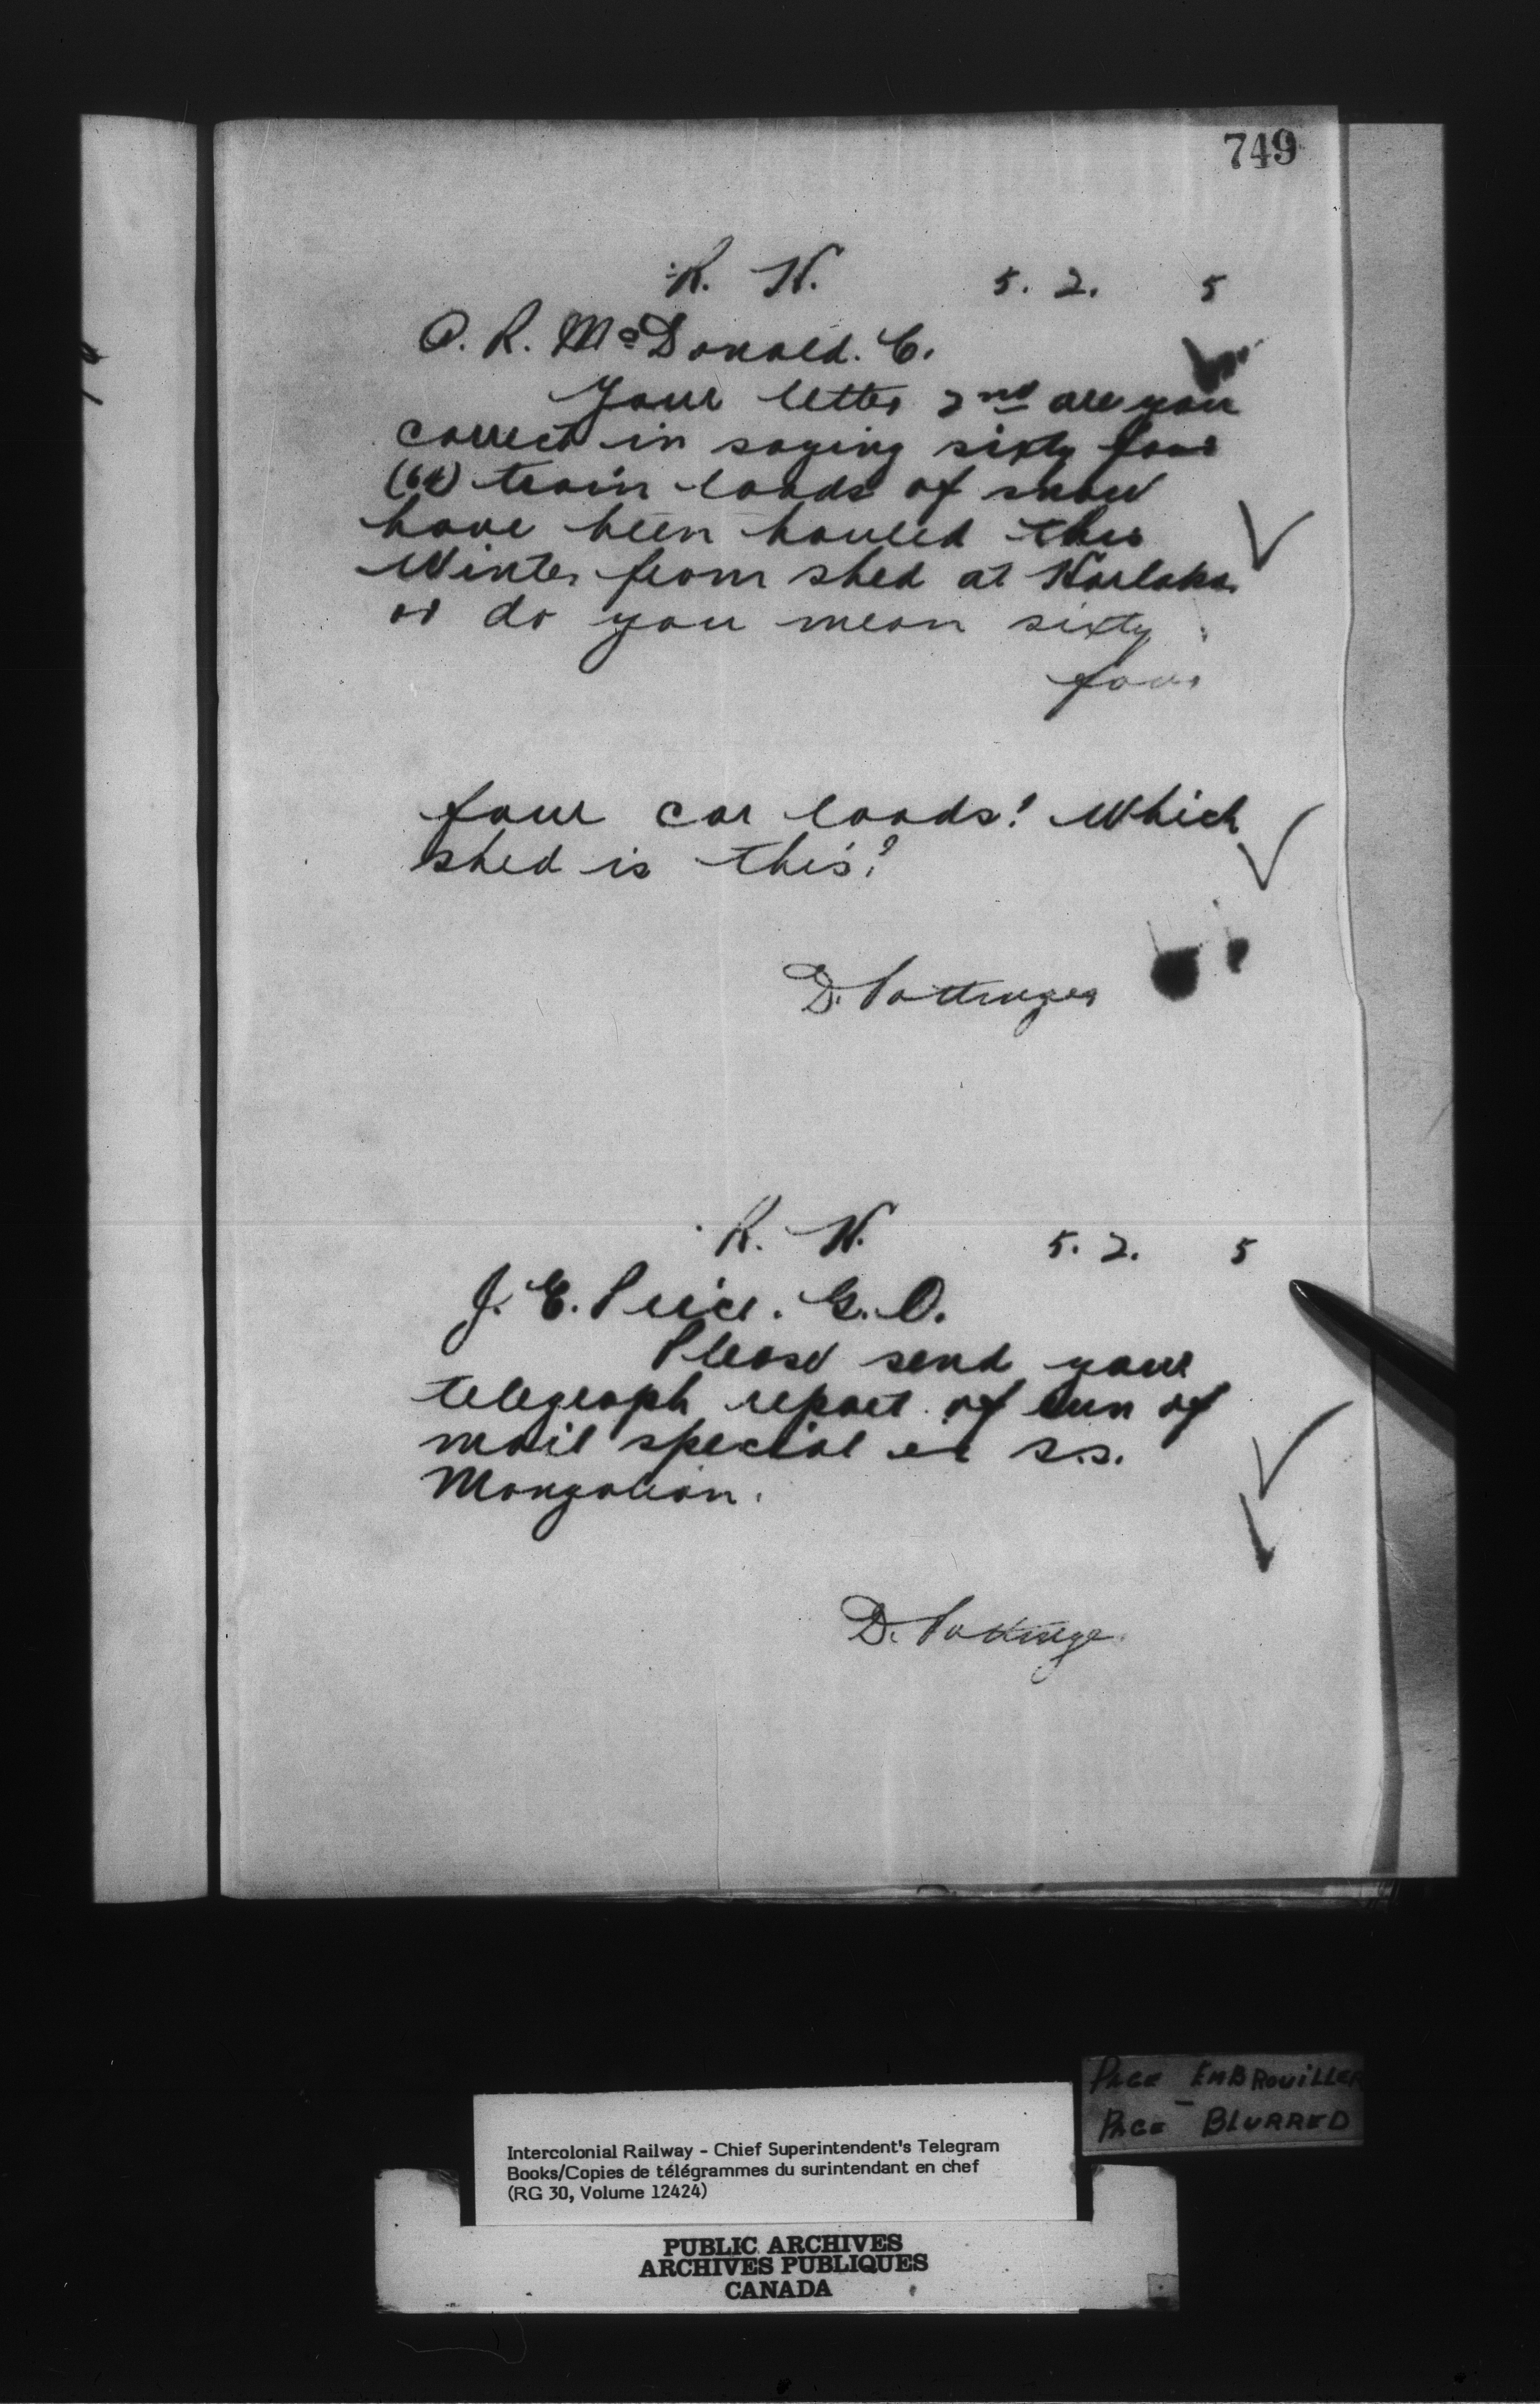 749
R. W. 5. 2. 5
A. R. McDonald. C.
Your letter 2nd are you
correct in saying sixty four
(64) train loads of snow
have been hauled this
Winter from shed at Harlaka
or do you mean sixty
four
four car loads? Which
shed is this?
D. Pottinger
R. W. 5. 2. 5
J. E. Price. G. O.
Please send your
telegraph report of run of
mail special ex s.s.
Mongolian.
D. Pottinger
PAGE EMBROUILLER
PAGE BLURRED
Intercolonial Railway - Chief Superintendent's Telegram
Books/Copies de télégrammes du surintendant en chef
(RG 30, Volume 12424)
PUBLIC ARCHIVES
ARCHIVES PUBLIQUES
CANADA